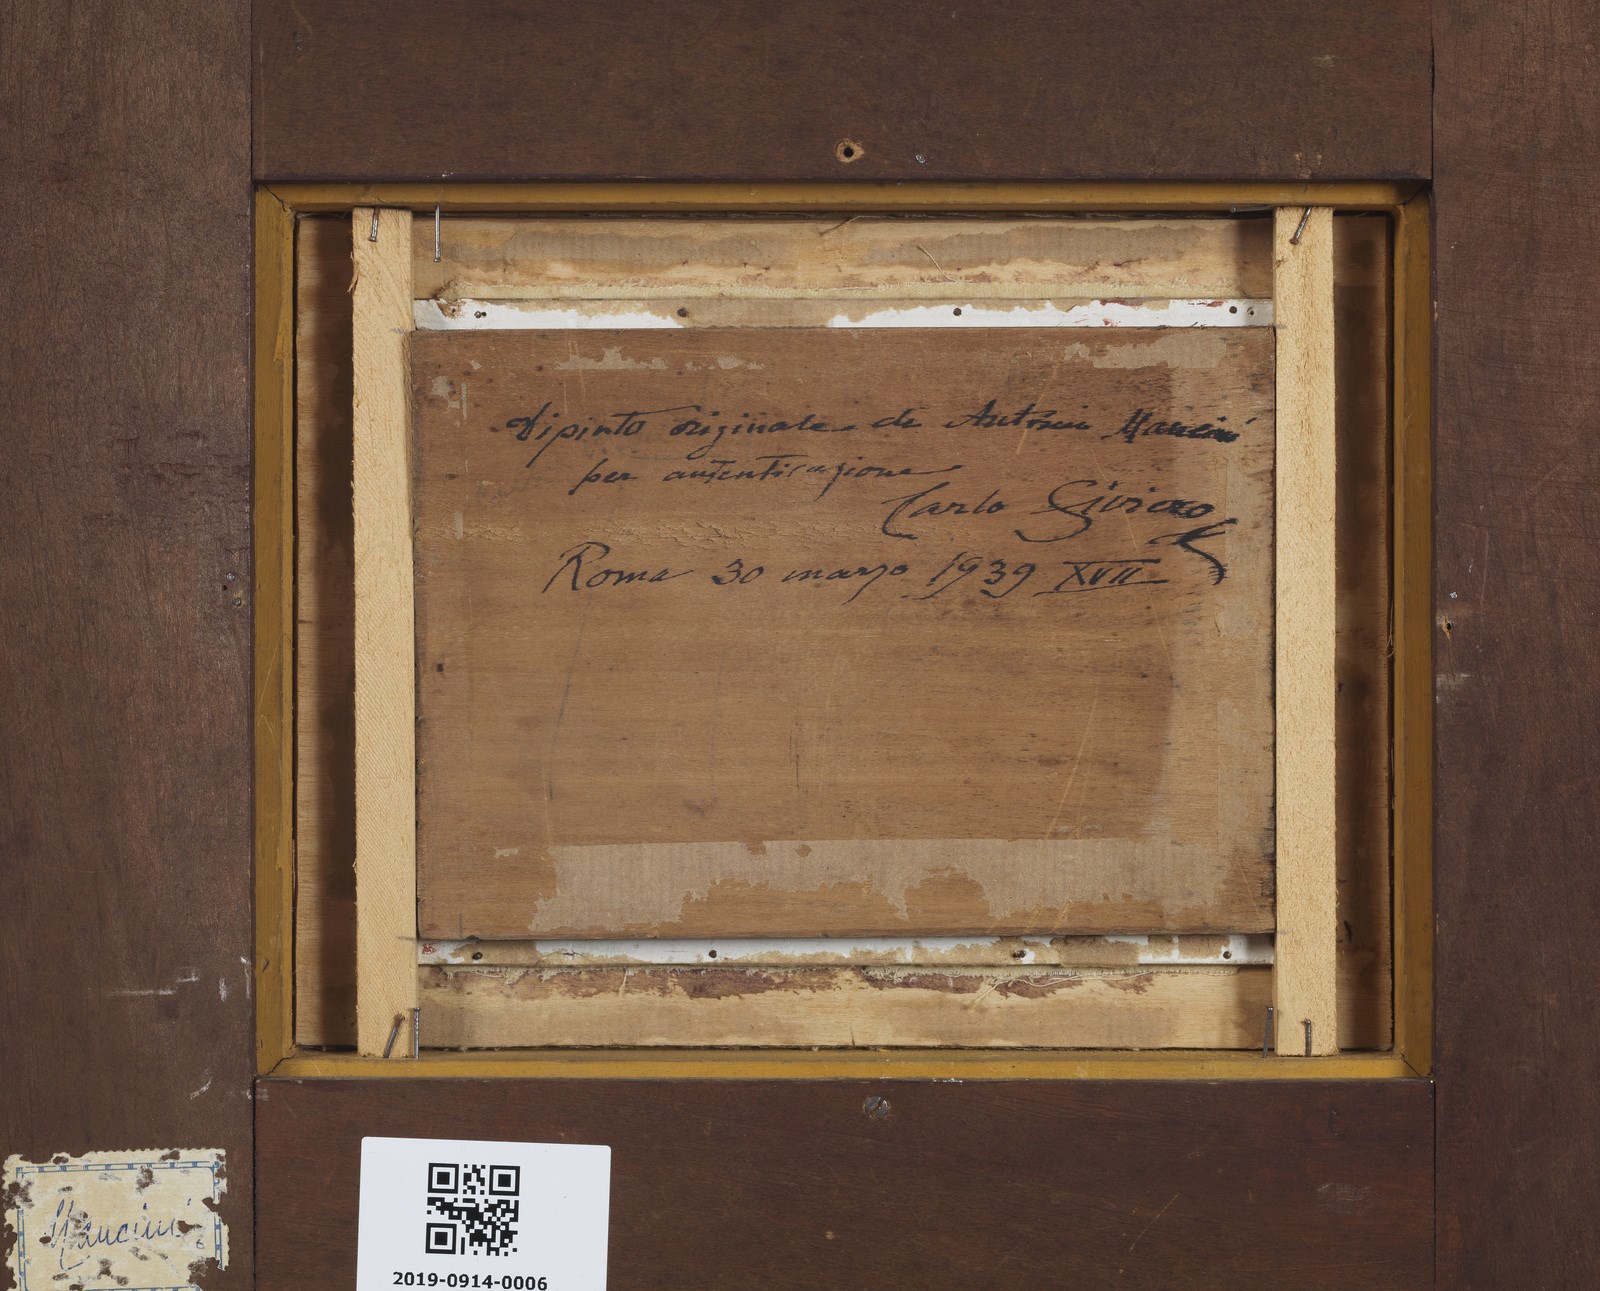 Dipinto originale di Antonio Mancini
per autenticazione
Carlo Siviero
Roma 30 marzo 1939 XVII
Mancini
2019-0914-0006